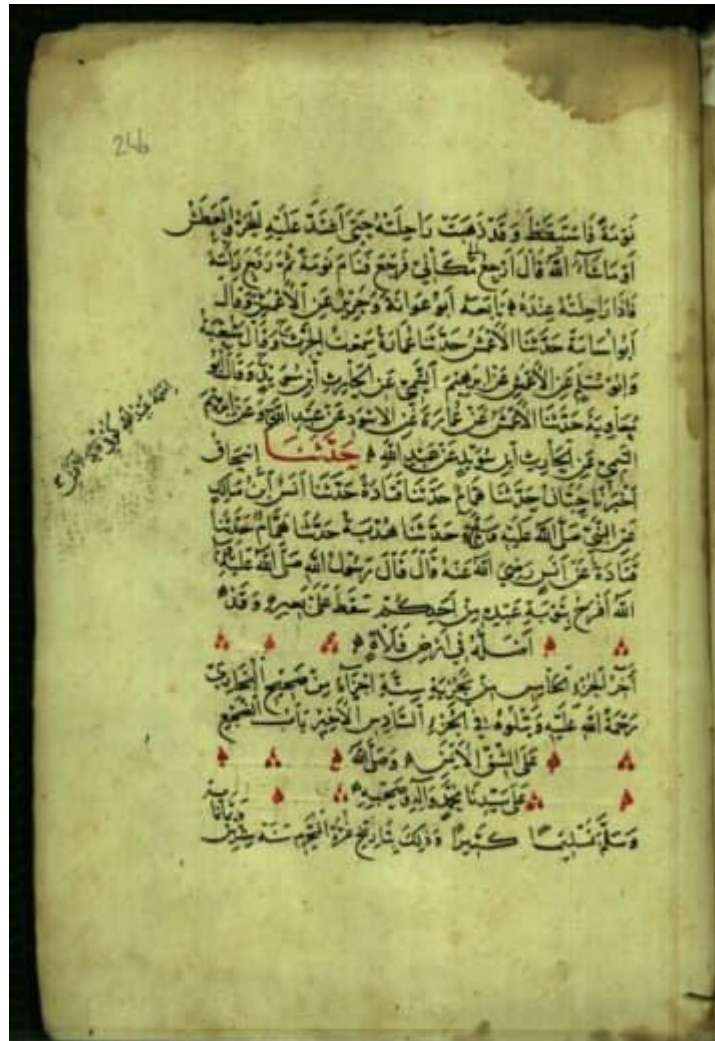 246
نَومَةً فَاسْتَيقَظَ وَقَدْ ذَهَبَتْ رَاحِلَتُهُ حَتَّى اشْتَدَّ عَلَيهِ الحَرُّ وَالعَطَشُ
أَوْمَا شَآءَ اللهُ قَالَ أَرْجِعُ إلى مَكَانِي فَرَجَعَ فَنَامَ نَومَةً ثُمَّ رَفَعَ رَأْسَهُ
فَاِذَا رَاحِلَتُهُ عِنْدَهُ تَابَعَهُ ابُو عَوَانَةَ وَجَرِيْرٌ عَنِ الأَعْمَشِ وَقَالَ
ابُو اسَامَةَ حَدَّثَنَا الأَعْمَشُ حَدَّثَنَا عُمَارَةُ سَمِعْتُ الحٰرِثَ وَقَالَ شُعْبَةُ
وَابُو مُسْلِمٍ عَنِ الأَعْمَشِ عَنْ ابرٰهِيْمَ التَّيْمِيِّ عَنِ الحَارِثِ ابْنِ سُوَيْدٍ وَقَالَ ابُو
مُعَاوِيَةَ حَدَّثَنَا الأَعْمَشُ عَنْ عُمَارَةَ عَنِ الاَسْوَدِ عَنْ عَبْدِ اللهِ وَعَنْ ابرٰهِيْمَ
التَّيْمِيِّ عَنِ الحَارِثِ ابْنِ سُوَيْدٍ عَنْ عَبْدِ اللهِ حَدَّثَنَا إسْحَاقُ
أَخْبَرَنَا حَبَّانُ حَدَّثَنَا هَمَّامٌ حَدَّثَنَا قَتَادَةُ حَدَّثَنَا أَنَسُ ابْنُ مَالِكٍ
عَنِ النَّبِيِّ صَلَّى اللهُ عَلَيْهِ وَحَدَّثَنَا هُدْبَةُ حَدَّثَنَا هَمَّامٌ حَدَّثَنَا
قَتَادَةُ عَنْ أَنَسٍ رَضِيَ اللهُ عَنْهُ قَالَ قَالَ رَسُولُ اللهِ صَلَّى اللهُ عَلَيْهِ
اللهُ أَفْرَحُ بِتَوْبَةِ عَبْدِهِ مِنْ أَحَدِكُمْ سَقَطَ عَلَى بَعِيْرِهِ وَقَدْ
أَضَلَّهُ فِي أَرْضِ فَلَاةٍ
آخِرُ الجُزْءِ الخَامِسِ مِنْ تَجْزِيَةِ سِتَّةِ اجْزَآءٍ مِنْ صَحِيْحِ البُخَارِيِّ
رَحْمَةُ اللهِ عَلَيْهِ وَيَتْلُوهُ فِي الجُزْءِ السَّادِسِ الأَخِيْرِ بَابُ الضَّجْعِ
عَلَى الشِّقِّ الأَيْمَنِ وَصَلَّى اللهُ
عَلَى سَيِّدِنَا مُحَمَّدٍ وَآلِهِ وَصَحْبِهِ
وَسَلَّمَ تَسْلِيْمًا كَثِيْرًا وَذٰلِكَ بِتَارِيْخِ غُرَّةِ المُحَرَّمِ سَنَةَ